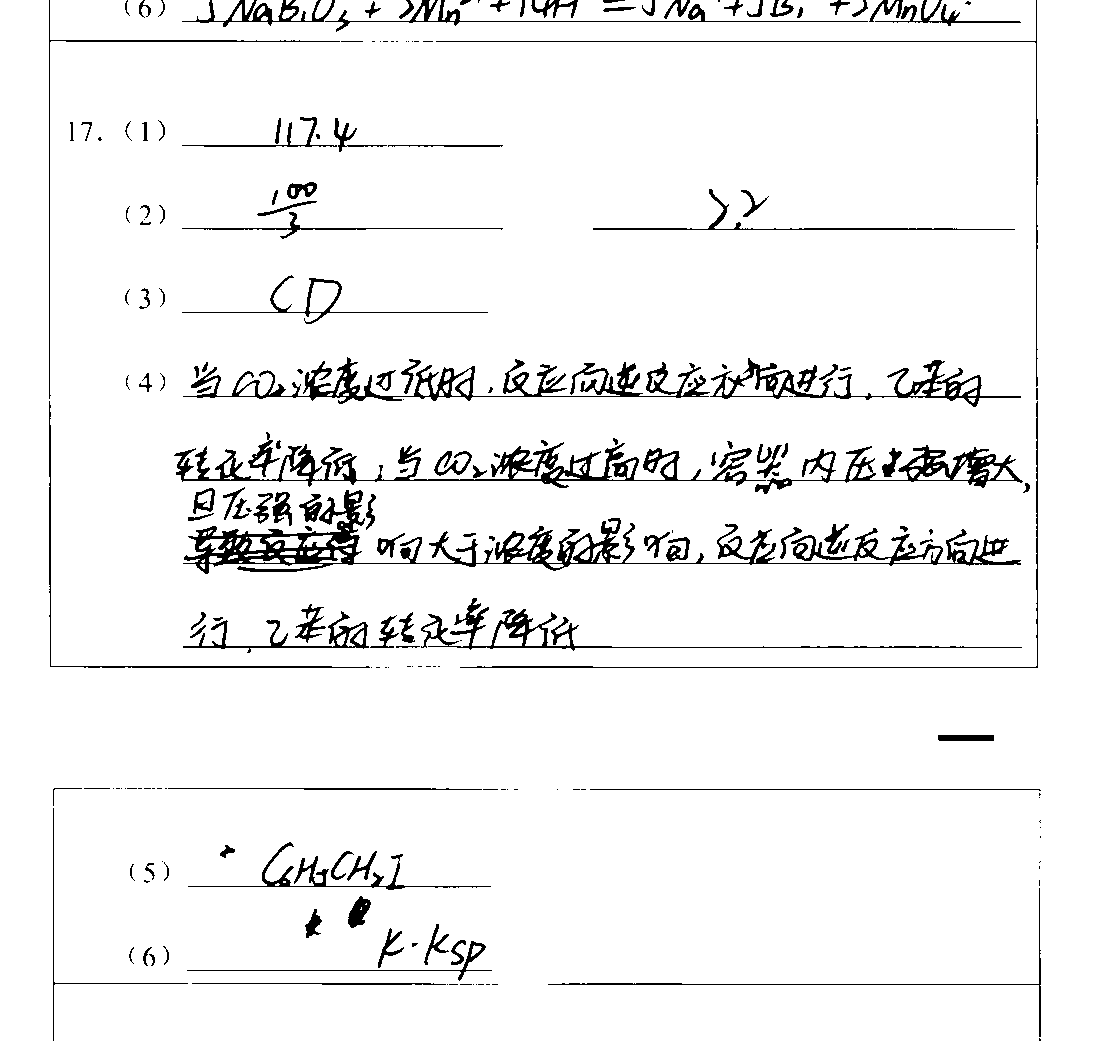 (6) 5NaBiO₃ + 2Mn²⁺ + 14H⁺ = 5Na⁺ + 5Bi³⁺ + 2MnO₄⁻
17. (1) 117.4
(2) 100/3 2.2
(3) CD
(4) 当CO₂浓度过低时,反应向逆反应方向进行,乙苯的
转化率降低;当CO₂浓度过高时,容器内压强增大,
且压强的影
响大于浓度的影响,反应向逆反应方向进
行,乙苯的转化率降低
(5) C₆H₅CH₂I
(6) K·Ksp